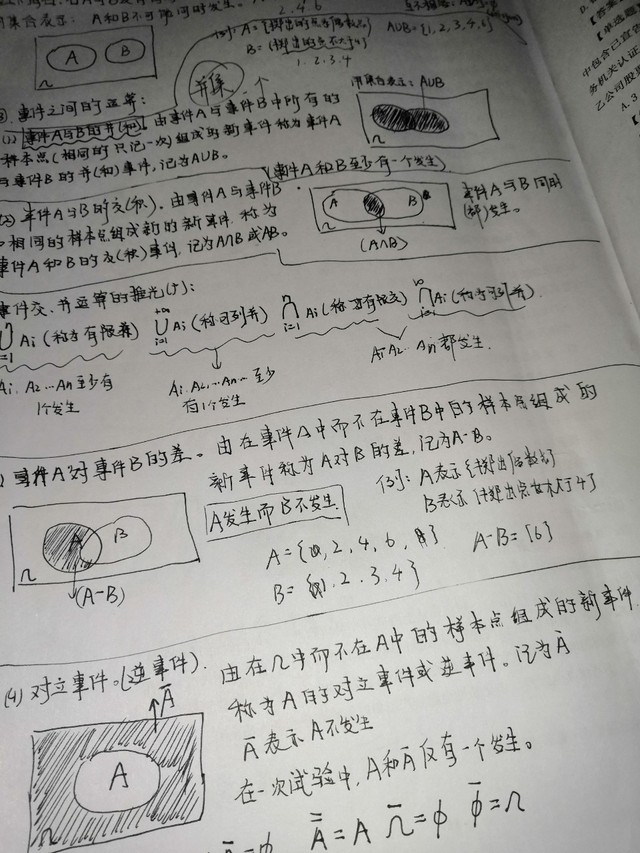 集合表示: A和B不可能同时发生。
2.4.6
例: A={掷出的点为偶数点}
B={掷出的点不大于4}
1.2.3.4
AUB={1,2,3,4,6}
A B
Ω
并集
事件之间的运算:
(1) 事件A与B的并(和). 由事件A与事件B中所有的
样本点(相同的只记一次)组成的新事件称为事件A
与事件B的并(和)事件,记为AUB。
用集合表示: AUB
Ω
(事件A和B至少有一个发生)
(2) 事件A与B的交(积). 由事件A与事件B
相同的样本点组成新的新事件, 称为
事件A和B的交(积)事件, 记为A∩B或AB。
A B
Ω
(A∩B)
事件A与B同时
(都)发生。
事件交、并运算的推广(广):
n∪i=1 Ai (称为有限并) +∞∪i=1 Ai (称可列并) n∩i=1 Ai (称为有限交) ∞∩i=1 Ai (称为可列交).
A1. A2...An至少有
1个发生
A1. A2...An... 至少
有1个发生
A1 A2... An 都发生.
事件A对事件B的差。由在事件A中而不在事件B中的样本点组成的
新事件称为A对B的差, 记为A-B。
A发生而B不发生.
例: A表示{掷出偶数}
B表示{掷出点数不大于4}
A={2,4,6}
B={1.2.3.4}
A-B={6}
A B
Ω
(A-B)
(4) 对立事件。(逆事件). 由在Ω中而不在A中的样本点组成的新事件.
称为A的对立事件或逆事件。记为Ā
Ā表示A不发生
在一次试验中, A和Ā仅有一个发生。
Ā
A
Ω
A̿=A Ω̄=φ φ̄=Ω